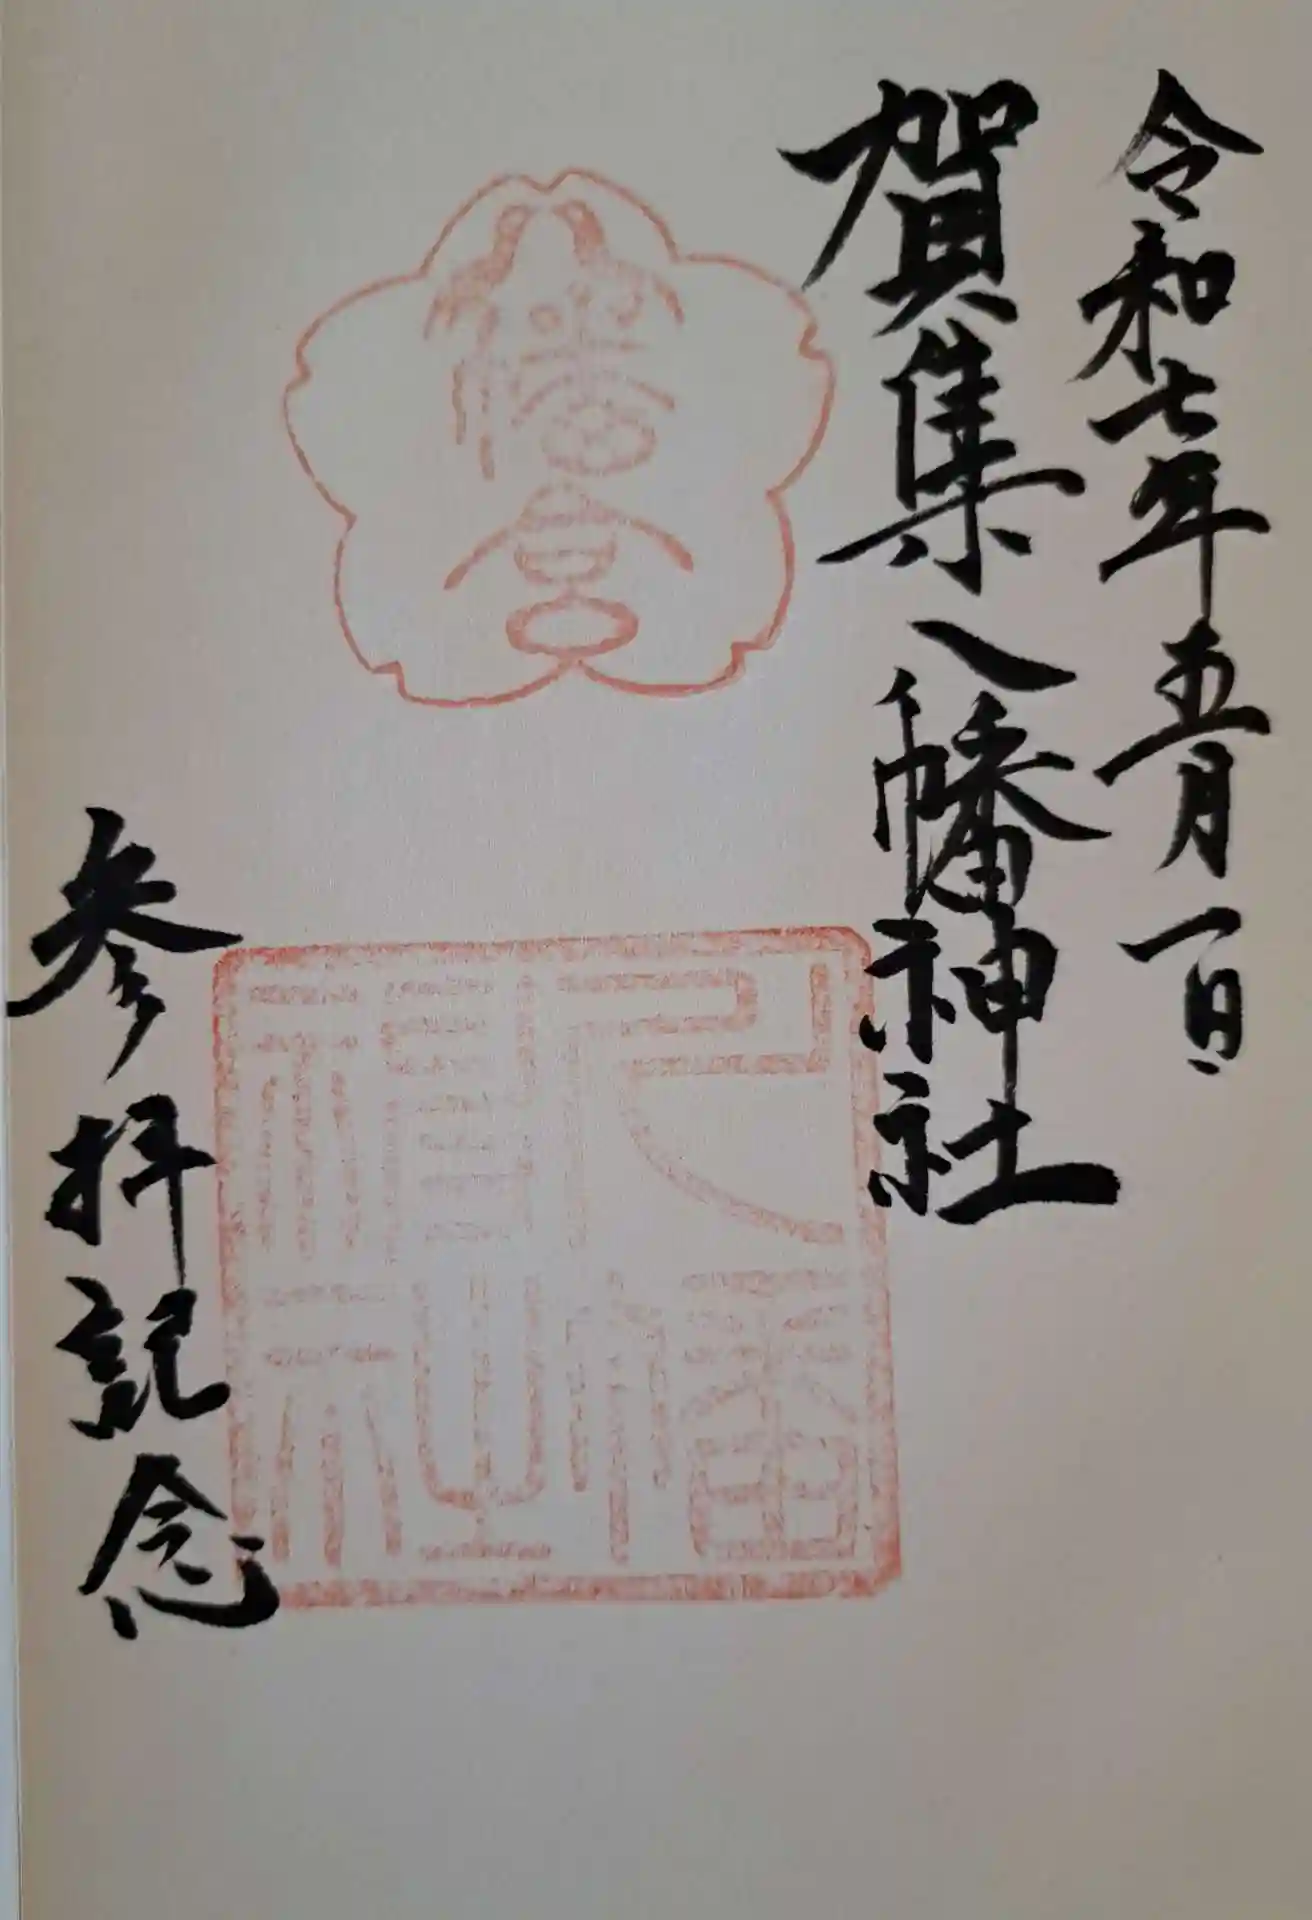 令和七年五月一日
賀集八幡神社
八幡宮
八幡
神社
参拝記念